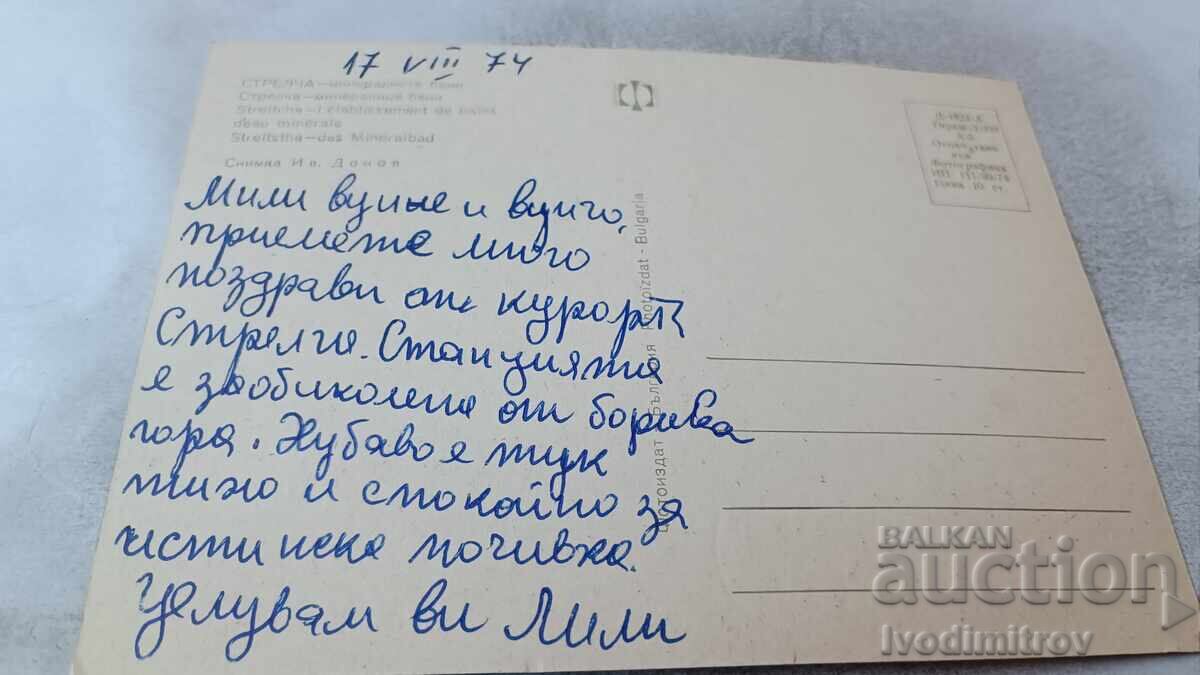 17 VIII 74
СТРЕЛЧА — минералните бани
Стрелча — минеральные бани
Streltcha — l'établissement de bains
d'eau minérale
Streltstha — das Mineralbad
Снимка Ив. Донов
Мили вуйне и вуйчо,
приемете много
поздрави от курорта
Стрелча. Станцията
е заобиколена от борова
гора. Хубаво е тук
тихо и спокойно за
истинска почивка.
Целувам ви Лили
Фотоиздат България Photoizdat - Bulgaria
Фотографика
BALKAN
auction
Ivodimitrov